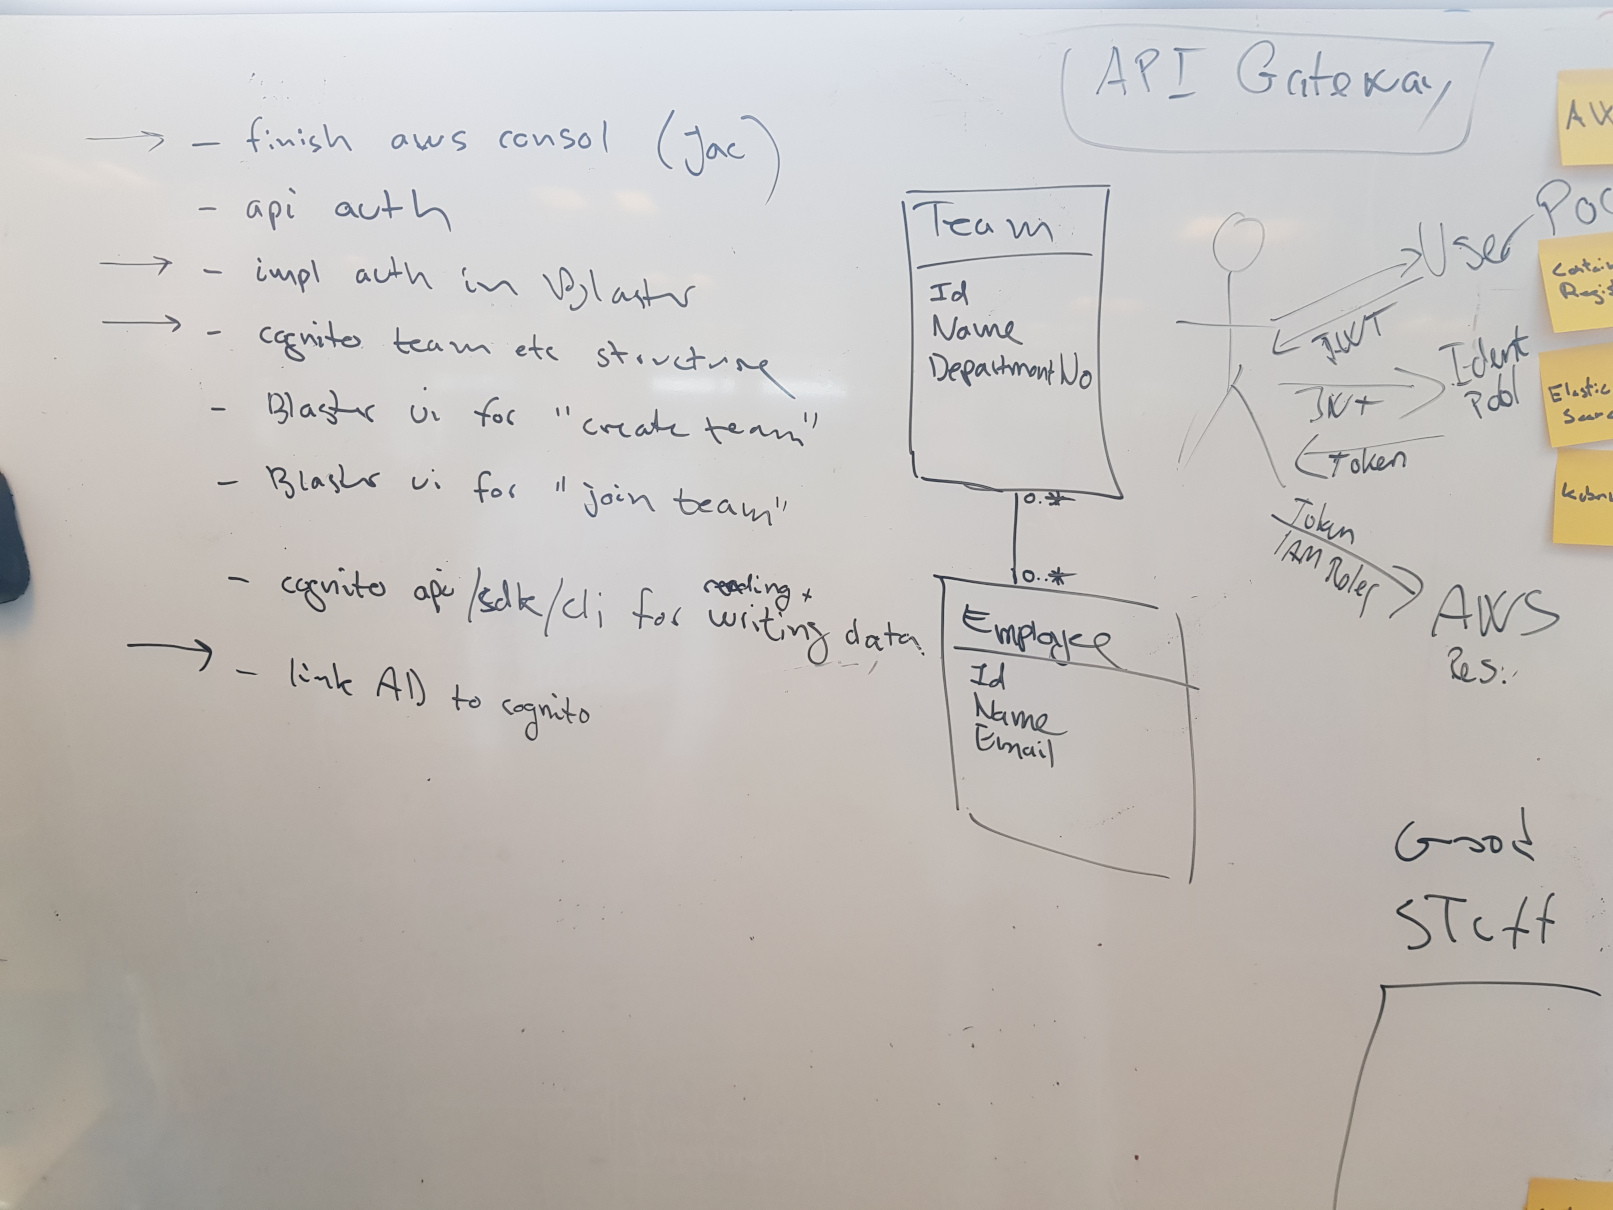 API Gateway
- finish aws consol (Jac)
- api auth
- impl auth in Blaster
- cognito team etc structure
- Blaster ui for "create team"
- Blaster ui for "join team"
- cognito api/sdk/cli for reading + writing data
- link AD to cognito
Team
Id
Name
DepartmentNo
0..*
0..*
Employee
Id
Name
Email
User
JWT
Ident
Pool
Token
Token
IAM Roles
AWS
Res.
Elastic
Good
STuff